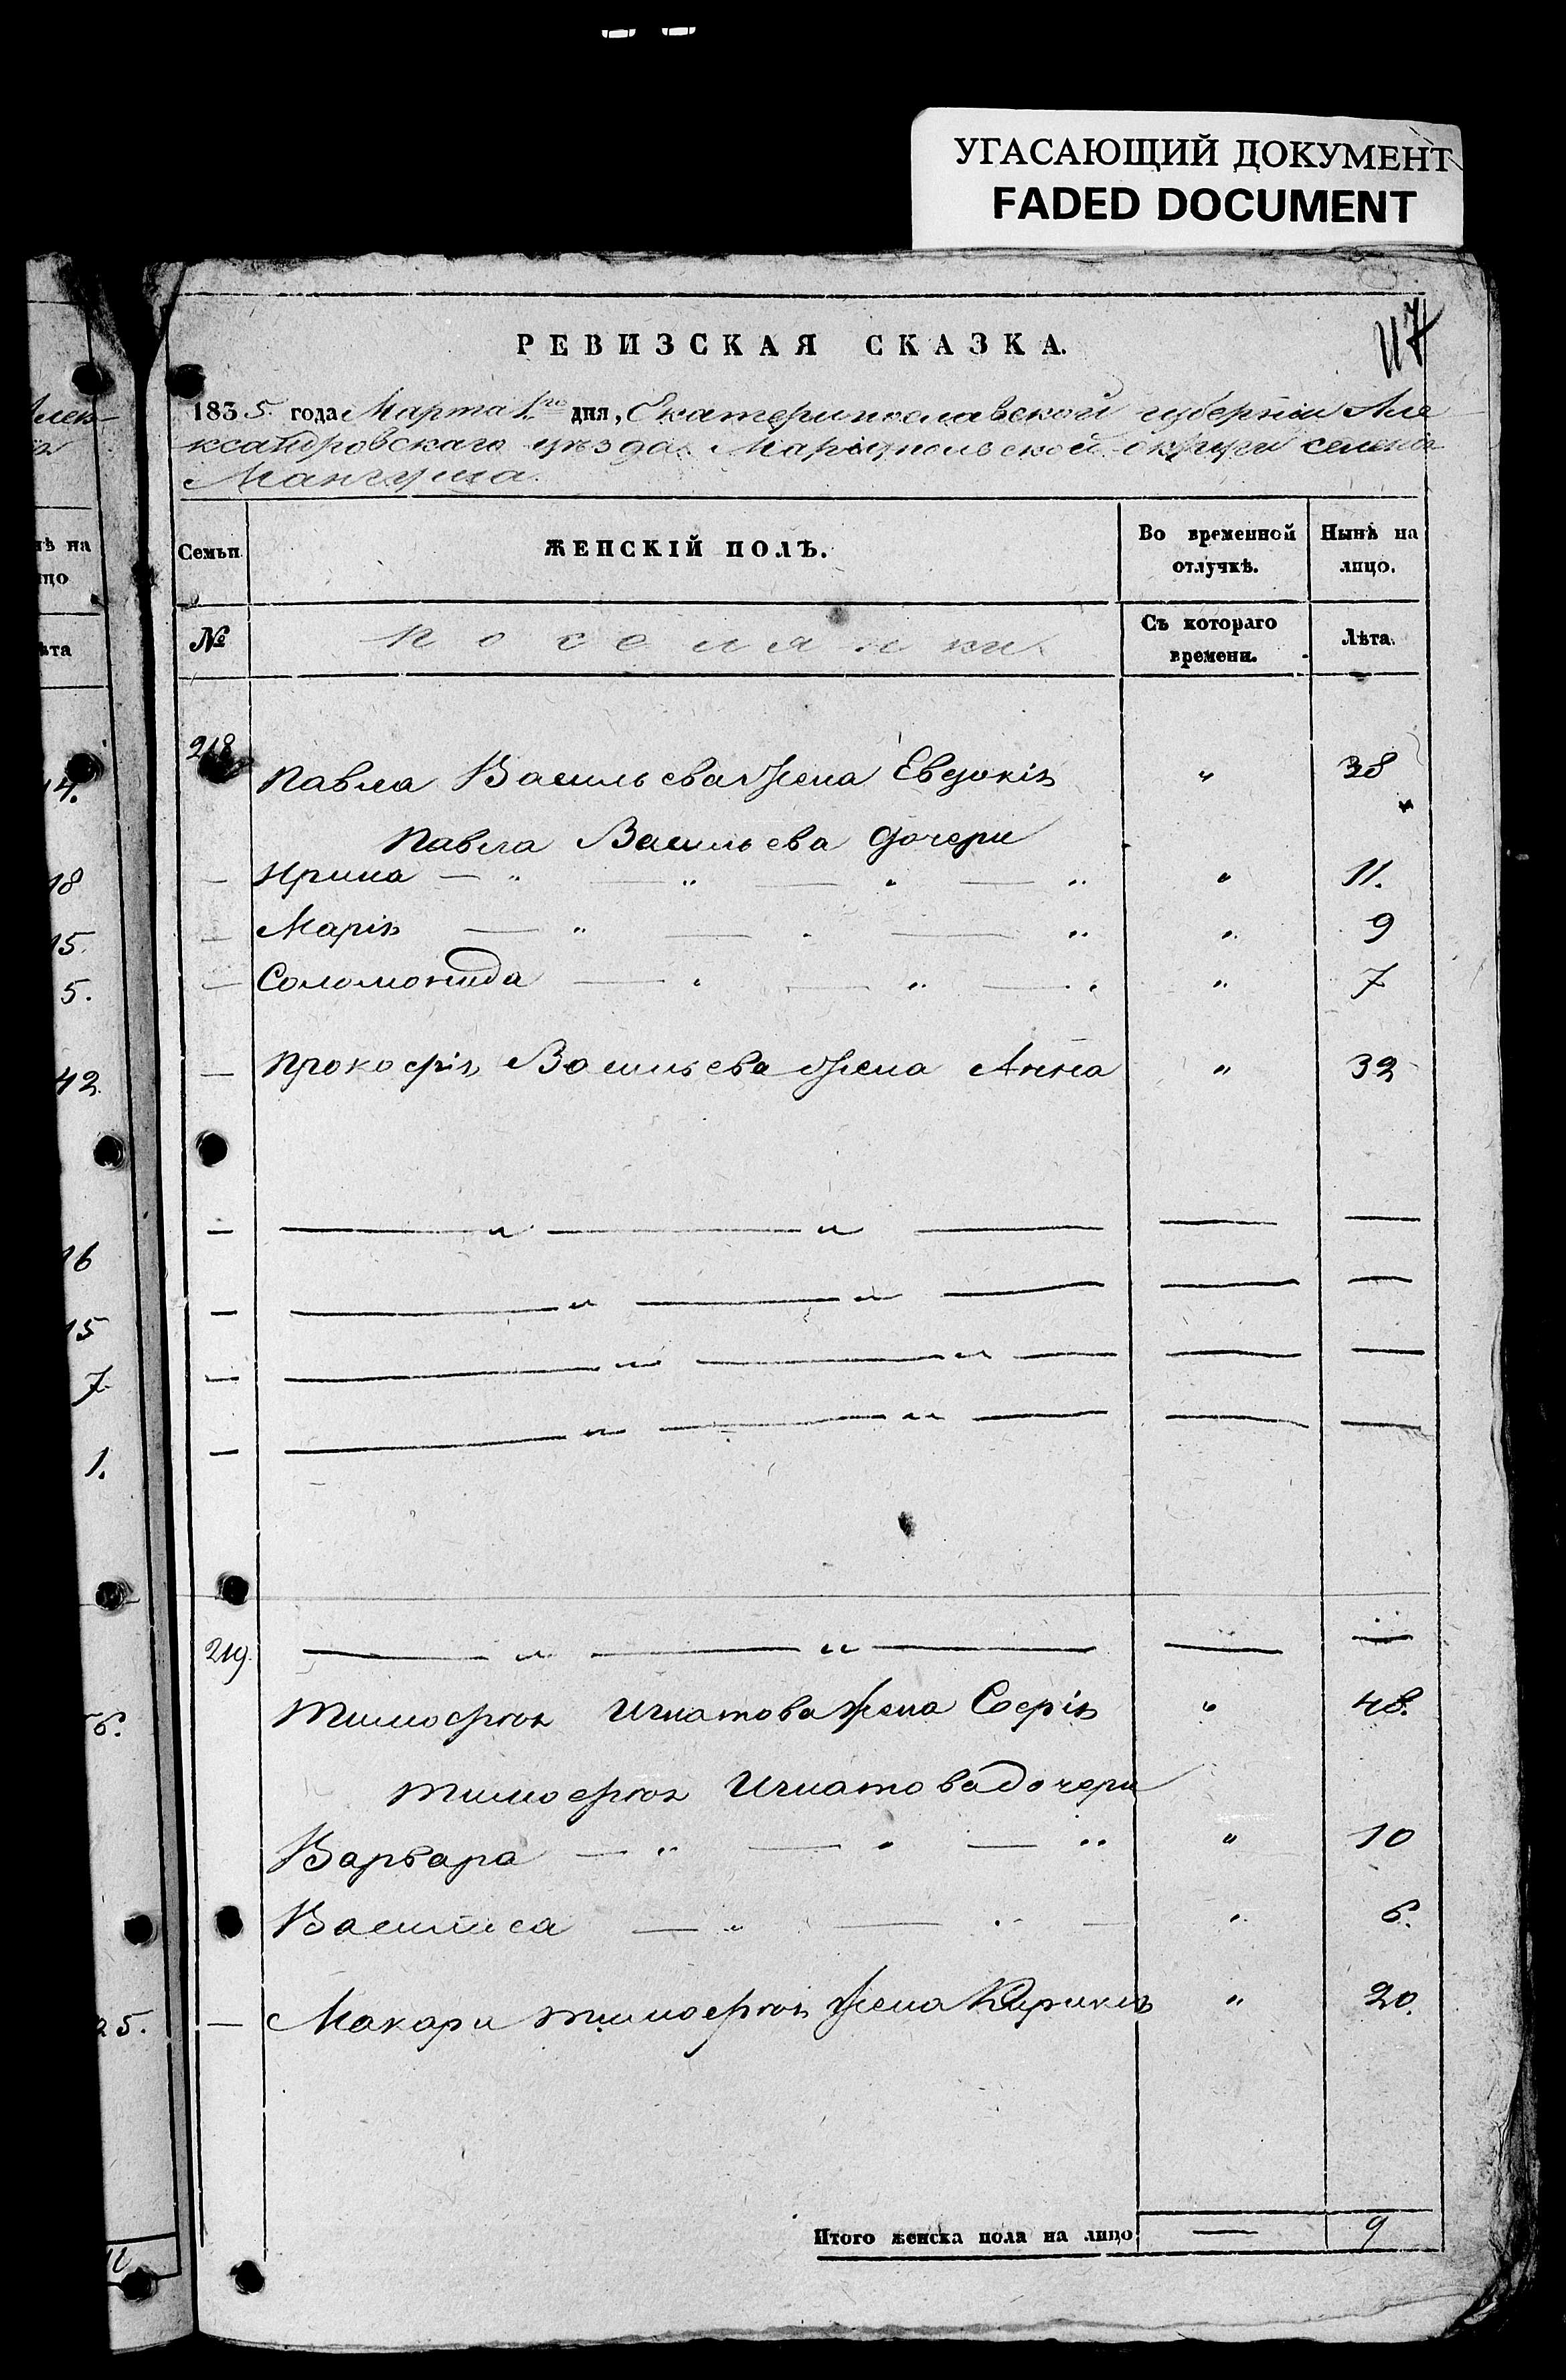 УГАСАЮЩИЙ ДОКУМЕНТ
FADED DOCUMENT
117
РЕВИЗСКАЯ СКАЗКА.
1835. года Марта 1го дня, Екатеринославской губернiи Але
ксандровскаго уѣзда Марiупольской округи селенiя
Мангуша.
Семьи ЖЕНСКІЙ ПОЛЪ. Во временной отлучкѣ. Нынѣ на лицо.
№ поселянки. Съ котораго времени. Лѣта.
218 Павла Васильева жена Евдокiя " 38
Павла Васильева дочери
— Ирина — " — " — " — " " 11.
— Марiя — " — " — " " 9
— Соломонида — " — " — " " 7
— Прокофiя Васильева жена Анна " 32
— — " — " — — —
— — " — " — — —
— — " — " — — —
— — " — " — — —
219. — " — " — — —
Тимофея Игнатова жена Софiя " 48.
Тимофея Игнатова дочери
Варвара — " — " — " " 10
Василиса — " — " — " 6.
— Макара Тимофея жена " 20.
Итого женска пола на лицо — 9
Алек
нѣ на
цо
ѣта
14.
18
15.
5.
42.
16
15
7.
1.
25.